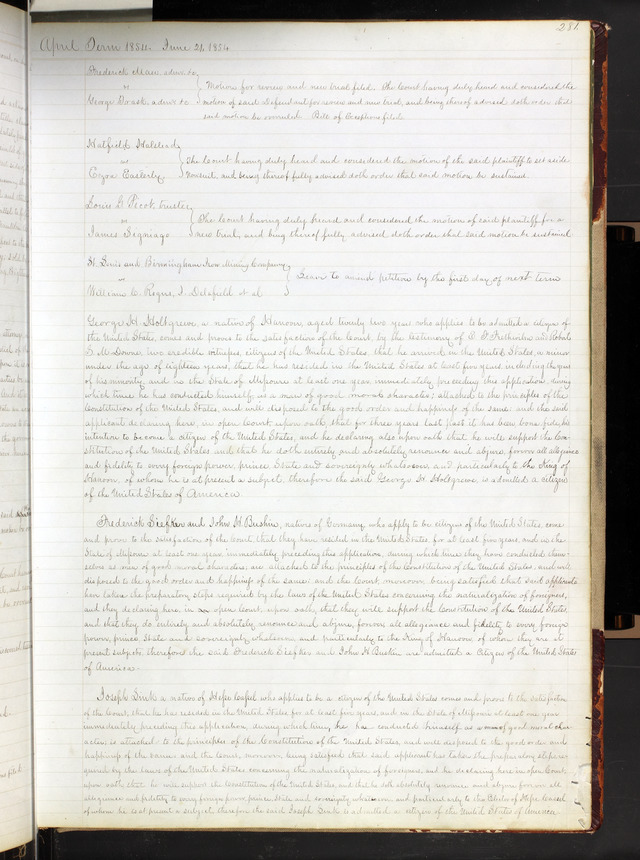 281.
April Term 1854. June 21, 1854
Frederick admr. &c.
vs
George admr &c.
Motion for review and new trial filed. The Court having duly heard and considered the
motion of said Defendant for review and new trial, and being thereof advised doth order that
said motion be overruled. Bill of Exceptions filed.
Halfield Halstead
vs
Ezra
The Court having duly heard and considered the motion of the said plaintiff to set aside
Nonsuit, and being thereof fully advised doth order that said motion be sustained.
Louis G. Picot, trustee,
vs
James
The Court having duly heard and considered the motion of said plaintiff for a
new trial, and being thereof fully advised doth order that said motion be sustained.
St. Louis and Birmingham Iron Mining Company
vs
William C. J. Delafield et al
Leave to amend petition by the first day of next term
George H. Holtgreve, a native of Hanover, aged twenty two years who applies to be admitted a citizen of
the United States, comes and proves to the satisfaction of the Court, by the testimony of and
two credible witnesses, citizens of the United States, that he arrived in the United States, a minor
under the age of eighteen years, that he has resided in the United States at least five years including the years
of his minority, and in the State of Missouri at least one year immediately preceding this application, during
which time he has conducted himself as a man of good moral character, attached to the principles of the
Constitution of the United States, and well disposed to the good order and happiness of the same: and the said
applicant declaring here, in open Court, upon oath, that for three years last past it has been bona fide his
intention to become a citizen of the United States, and he declaring also upon oath that he will support the Con-
stitution of the United States and that he doth entirely and absolutely renounce and abjure, forever all allegiance
and fidelity to every foreign power, prince State and sovereignty whatsoever, and particularly to the King of
Hanover, of whom he is at present a subject, therefore the said George H. Holtgreve, is admitted a citizen
of the United States of America
Frederick Siefker and John H. Buskin, natives of Germany, who apply to be citizens of the United States, come
and prove to the satisfaction of the Court, that they have resided in the United States, for at least five years, and in the
State of Missouri at least one year immediately preceding this application, during which time they have conducted them-
selves as men of good moral character, are attached to the principles of the Constitution of the United States, and well
disposed to the good order and happiness of the same: and the Court moreover being satisfied that said applicants
have taken the preparatory steps required by the laws of the United States concerning the naturalization of foreigners,
and they declaring here in open Court, upon oath, that they will support the Constitution of the United States,
and that they do entirely and absolutely renounce and abjure, forever, all allegiance and fidelity to every foreign
power, prince State and sovereignty whatsoever and particularly to the King of Hanover of whom they are at
present subjects, therefore the said Frederick Siefker and John H. Buskin are admitted a citizen of the United States
of America.
Joseph a native of Hesse Cassel who applies to be a citizen of the United States comes and proves to the satisfaction
of the Court, that he has resided in the United States for at least five years, and in the State of Missouri at least one year
immediately preceding this application, during which time, he has conducted himself as a man of good moral char-
acter is attached to the principles of the Constitution of the United States, and well disposed to the good order and
happiness of the same: and the Court moreover being satisfied that said applicant has taken the preparatory steps re-
quired by the laws of the United States concerning the naturalization of foreigners, and he declaring here in open Court,
upon oath, that he will support the Constitution of the United States, and that he doth absolutely renounce and abjure forever all
allegiance and fidelity to every foreign power, prince, State and sovereignty whatsoever, and particularly to the Elector of Hesse Cassel
of whom he is at present a subject, therefore the said Joseph is admitted a citizen of the United States of America